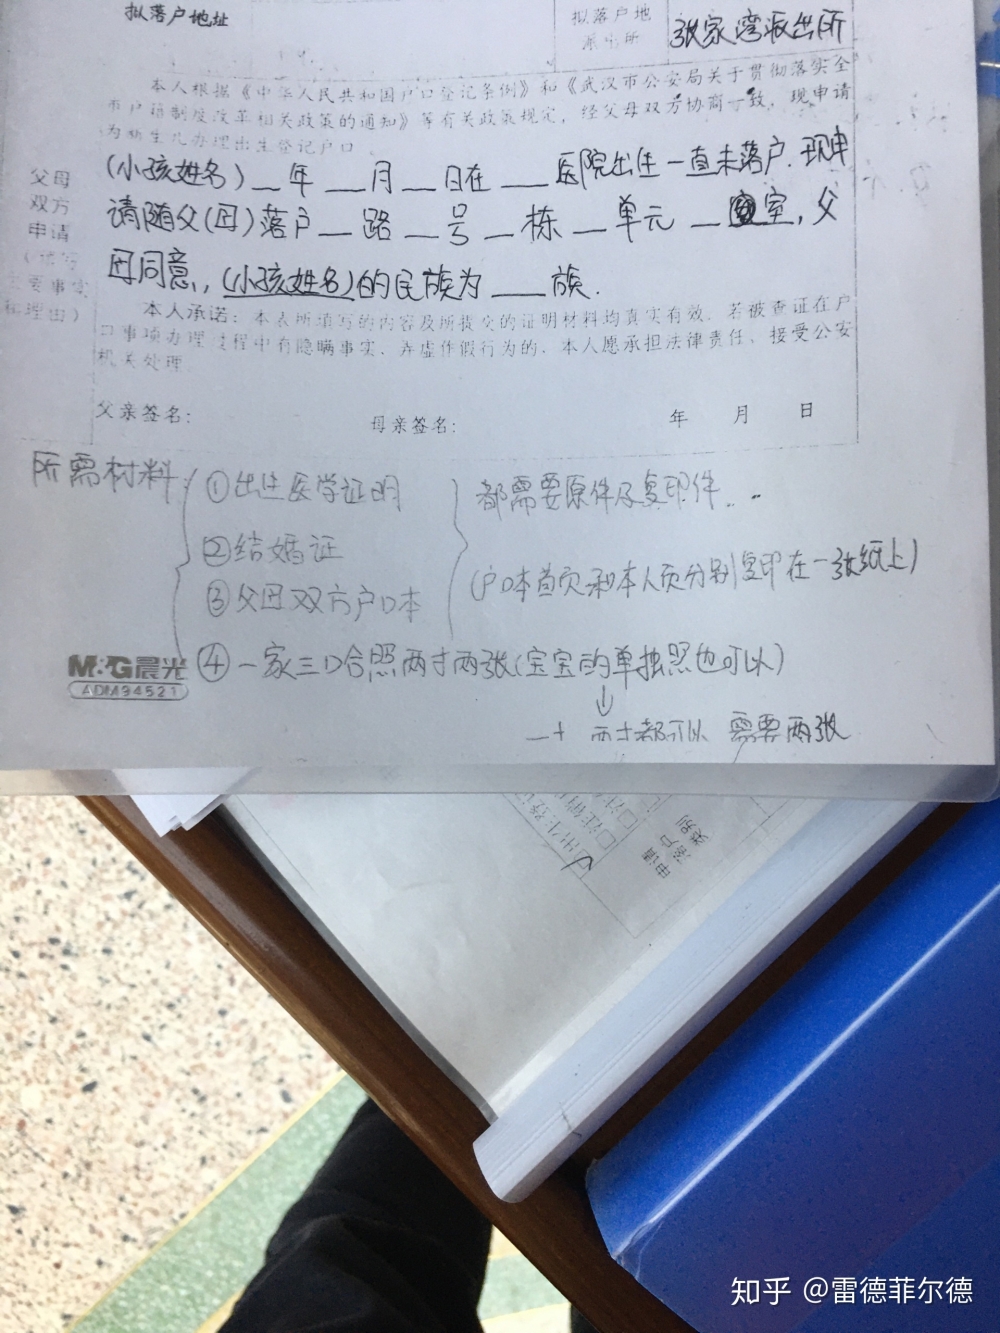 拟落户地址
拟落户地
派出所
张家湾派出所
本人根据《中华人民共和国户口登记条例》和《武汉市公安局关于贯彻落实全
市户籍制度改革相关政策的通知》等有关政策规定，经父母双方协商一致，现申请
为新生儿办理出生登记户口
父母
双方
申请
(小孩姓名)__年__月__日在__医院出生一直未落户.现申
请随父(母)落户__路__号__栋__单元__室,父
母同意,(小孩姓名)的民族为__族.
主要事实
和理由)
本人承诺：本表所填写的内容及所提交的证明材料均真实有效．若被查证在户
口事项办理过程中有隐瞒事实、弄虚作假行为的，本人愿承担法律责任、接受公安
机关处理
父亲签名：
母亲签名：
年 月 日
所需材料
①出生医学证明
②结婚证
③父母双方户口本
都需要原件及复印件..
(户口本首页和本人页分别复印在一张纸上)
④一家三口合照两寸两张(宝宝的单独照也可以)
↓
一寸 两寸都可以 需要两张
M&G晨光
ADM94521
出生登记
注销
申请
落户
类别
知乎 @雷德菲尔德